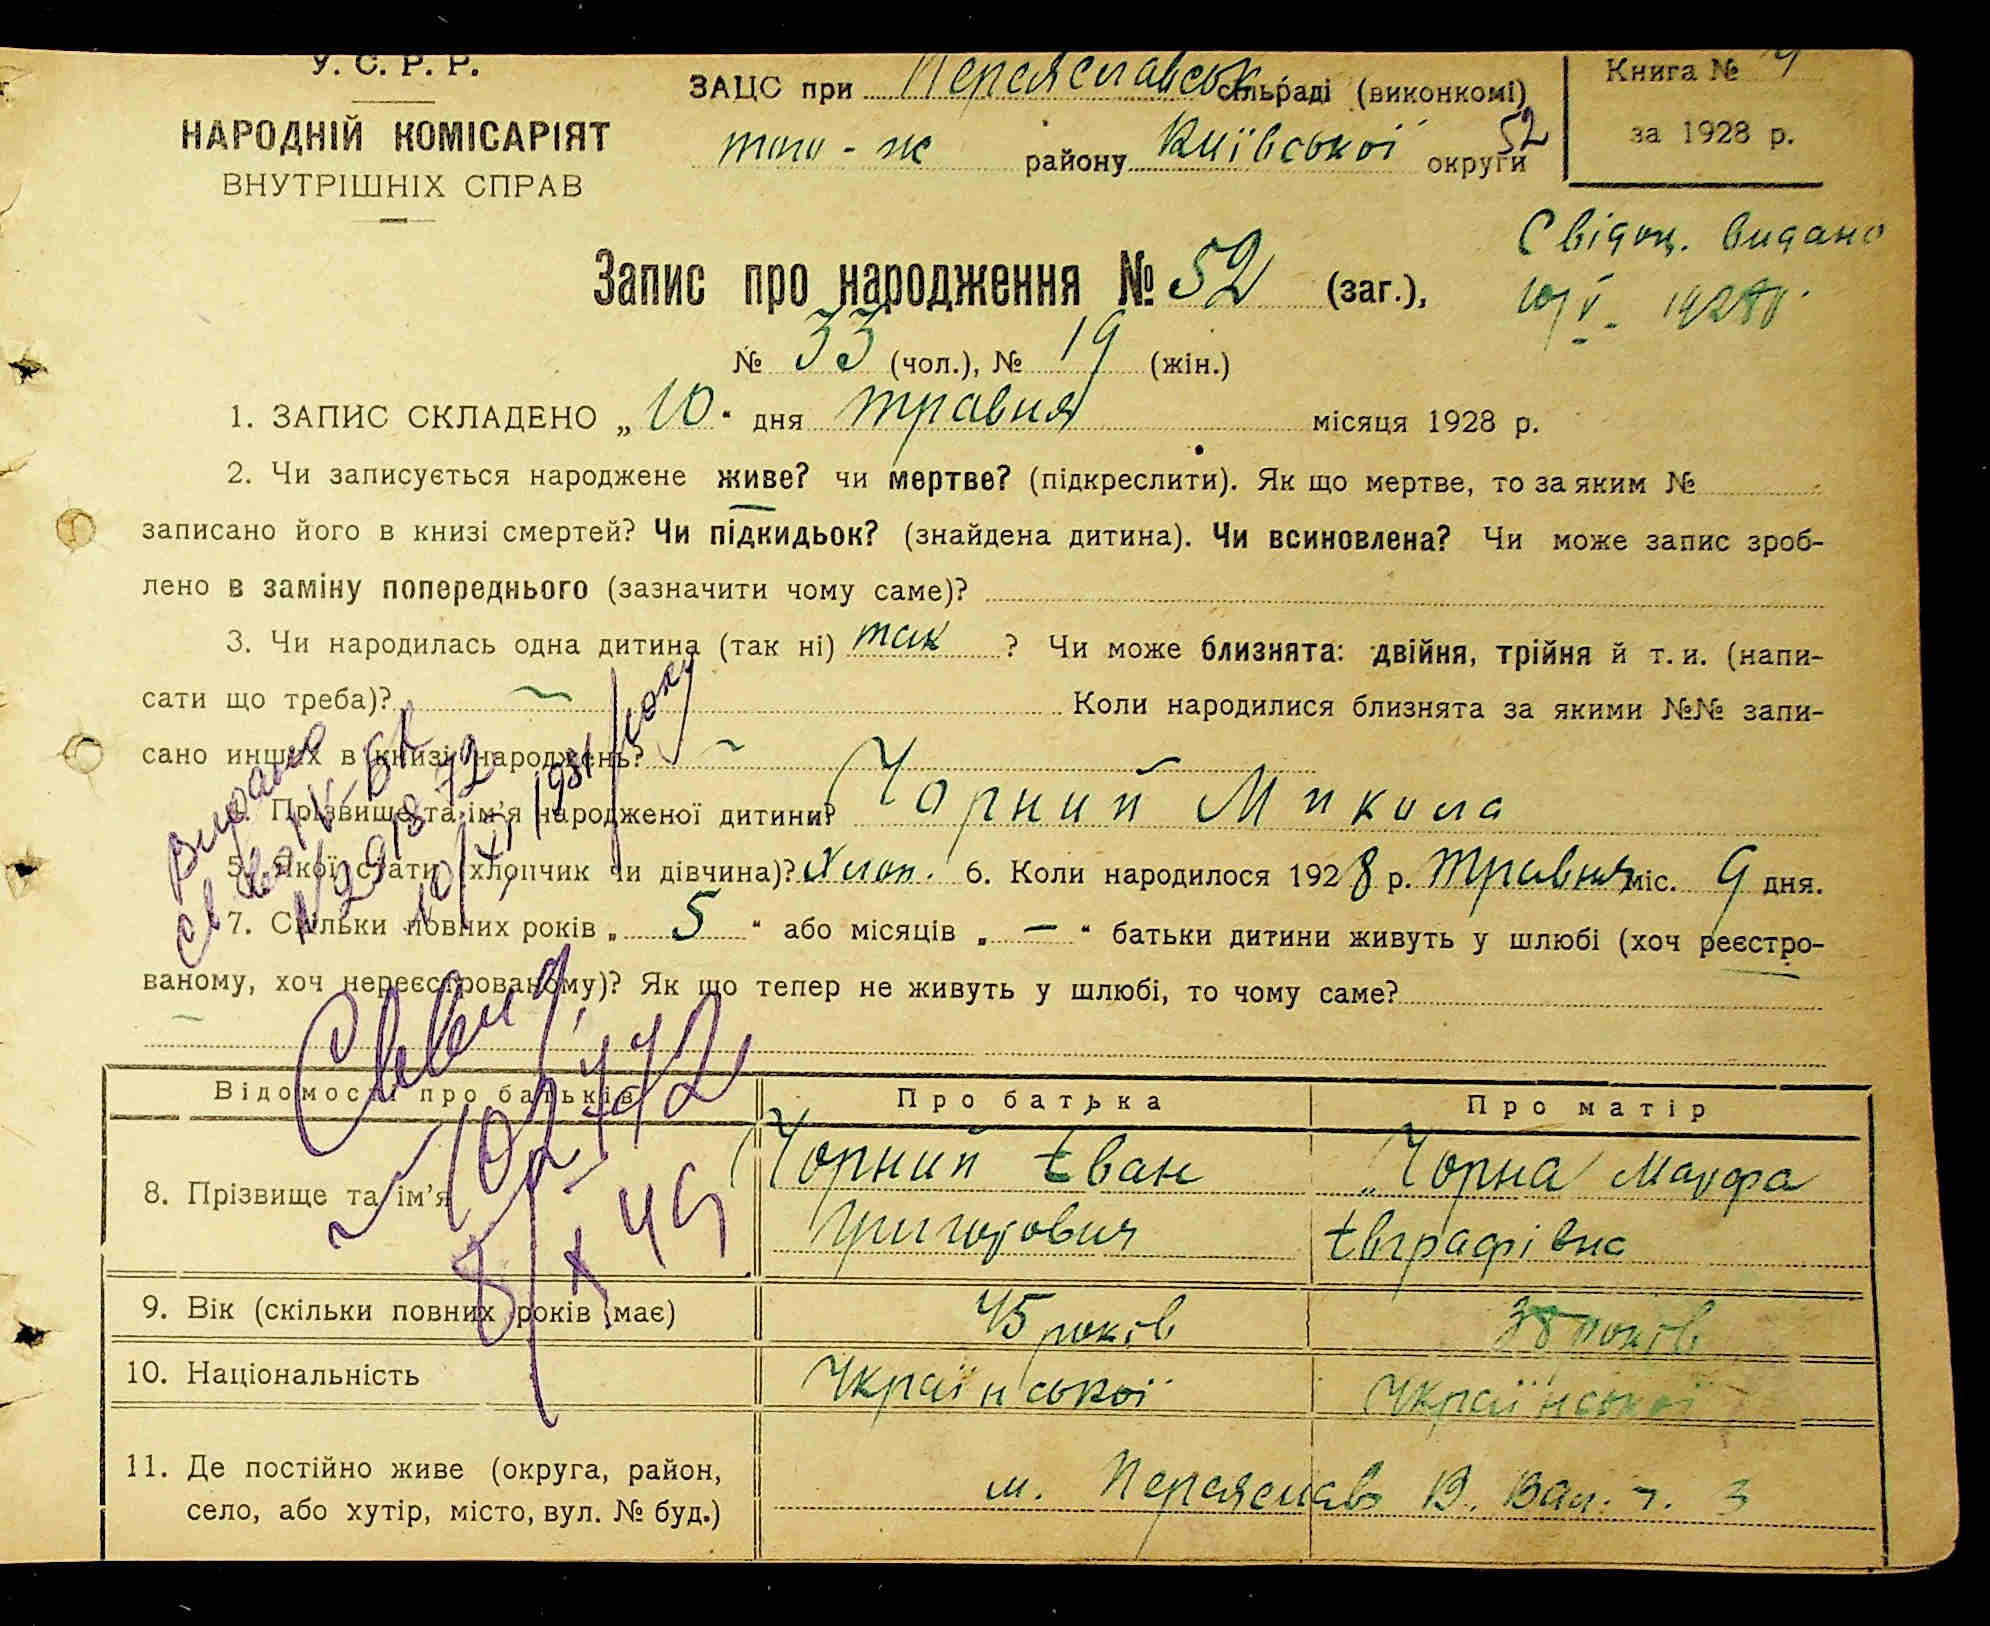 У. С. Р. Р.
НАРОДНІЙ КОМІСАРІЯТ
ВНУТРІШНІХ СПРАВ
ЗАЦС при Переяславськ сільраді (виконкомі)
того-ж району Київської округи
52
Книга №
за 1928 р.
Запис про народження № 52 (заг.),
Свідоц. видано
10/V 1928 р.
№ 33 (чол.), № 19 (жін.)
1. ЗАПИС СКЛАДЕНО „ 10 “ дня травня місяця 1928 р.
2. Чи записується народжене живе? чи мертве? (підкреслити). Як що мертве, то за яким №
записано його в книзі смертей? Чи підкидьок? (знайдена дитина). Чи всиновлена? Чи може запис зроб-
лено в заміну попереднього (зазначити чому саме)?
3. Чи народилась одна дитина (так ні) так ? Чи може близнята: двійня, трійня й т. и. (напи-
сати що треба)? Коли народилися близнята за якими №№ запи-
сано инших в книзі народжень?
4. Прізвище та ім’я народженої дитини? Чорний Микола
5. Якої стати (хлопчик чи дівчина)? Хлоп. 6. Коли народилося 1928 р. Травня міс. 9 дня.
7. Скільки повних років „ 5 “ або місяців „ — “ батьки дитини живуть у шлюбі (хоч реєстро-
ваному, хоч нереєстрованому)? Як що тепер не живуть у шлюбі, то чому саме?
Видано
10/XI 1931 року
8/X 49
Відомості про батьків Про батька Про матір
8. Прізвище та ім’я Чорний Іван Чорна Марфа
Григорович Євграфівна
9. Вік (скільки повних років має) 45 років 38 років
10. Національність Української Української
11. Де постійно живе (округа, район,
село, або хутір, місто, вул. № буд.) м. Переяслав В. Вал. 3